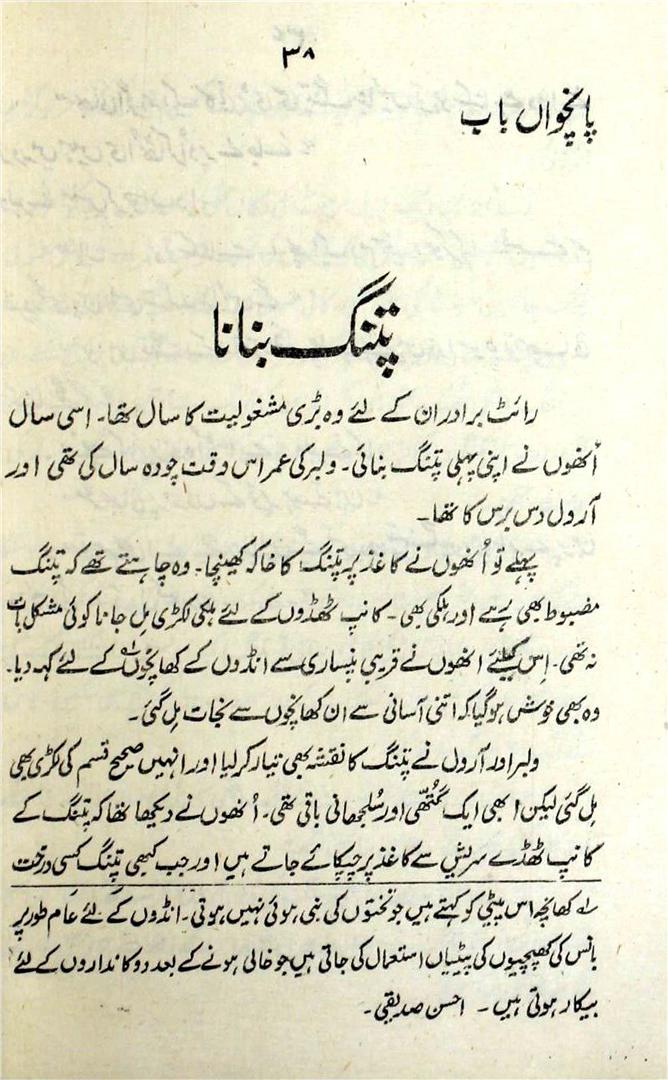 ۳۸
پانچواں باب
پتنگ بنانا
رائٹ برادران کے لئے وہ بڑی مشغولیت کا سال تھا۔ اسی سال
اُنھوں نے اپنی پہلی پتنگ بنائی۔ ولبر کی عمر اس وقت چودہ سال کی تھی اور
آرول دس برس کا تھا۔
پہلے تو اُنھوں نے کاغذ پر پتنگ کا خاکہ کھینچا۔ وہ چاہتے تھے کہ پتنگ
مضبوط بھی رہے اور ہلکی بھی۔ کانپ ٹھڈوں کے لئے ہلکی لکڑی مل جانا کوئی مشکل بات
نہ تھی۔ اِس کیلئے انھوں نے قریبی پنساری سے انڈوں کے کھانچوں لہ کے لئے کہہ دیا۔
وہ بھی خوش ہو گیا کہ اتنی آسانی سے ان کھانچوں سے نجات مل گئی۔
ولبر اور آرول نے پتنگ کا نقشہ بھی تیار کر لیا اور انہیں صحیح قسم کی لکڑی بھی
مل گئی لیکن ابھی ایک گتھی اور سُلجھانی باقی تھی۔ اُنھوں نے دیکھا تھا کہ پتنگ کے
کانپ ٹھڈے سریش سے کاغذ پر چپکائے جاتے ہیں اور جب کبھی پتنگ کسی درخت
لہ کھانچہ اس پیٹی کو کہتے ہیں جو تختوں کی بنی ہوئی نہیں ہوتی۔ انڈوں کے لئے عام طور پر
بانس کی کھپچیوں کی پیٹیاں استعمال کی جاتی ہیں جو خالی ہونے کے بعد دوکانداروں کے لئے
بیکار ہوتی ہیں۔ احسن صدیقی۔